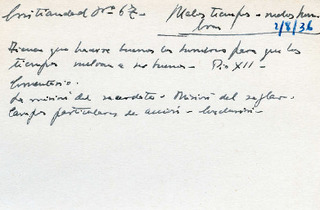 Cristiandad Nº 67.- Malos tiempos - malos hom-
bres
2/8/36
Tienen que hacerse buenos los hombres para que los
tiempos vuelvan a ser buenos. - Pio XII -
Comentario. -
La misión del sacerdote. - Misión del seglar. -
Campos particulares de acción - Conclusión -